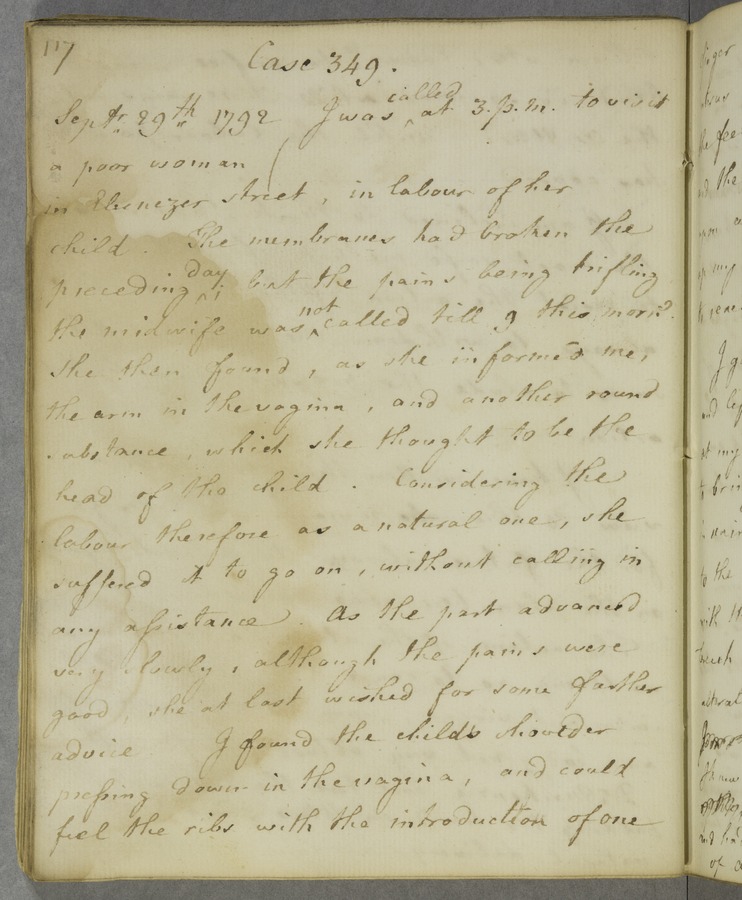 117
Case 349.
Septr. 29th 1792 I was called at 3. p.m. to visit
a poor woman
in Ebenezer street, in labour of her
child. The membranes had broken the
preceding day; but the pains being trifling
the midwife was not called till 9 this morng.
She then found, as she informed me,
the arm in the vagina, and another round
substance, which she thought to be the
head of the child. Considering the
labour therefore as a natural one, she
suffered it to go on, without calling in
any assistance. As the part advanced
very slowly, although the pains were
good, she at last wished for some farther
advice I found the child's shoulder
pressing down in the vagina, and could
feel the ribs with the introduction of one